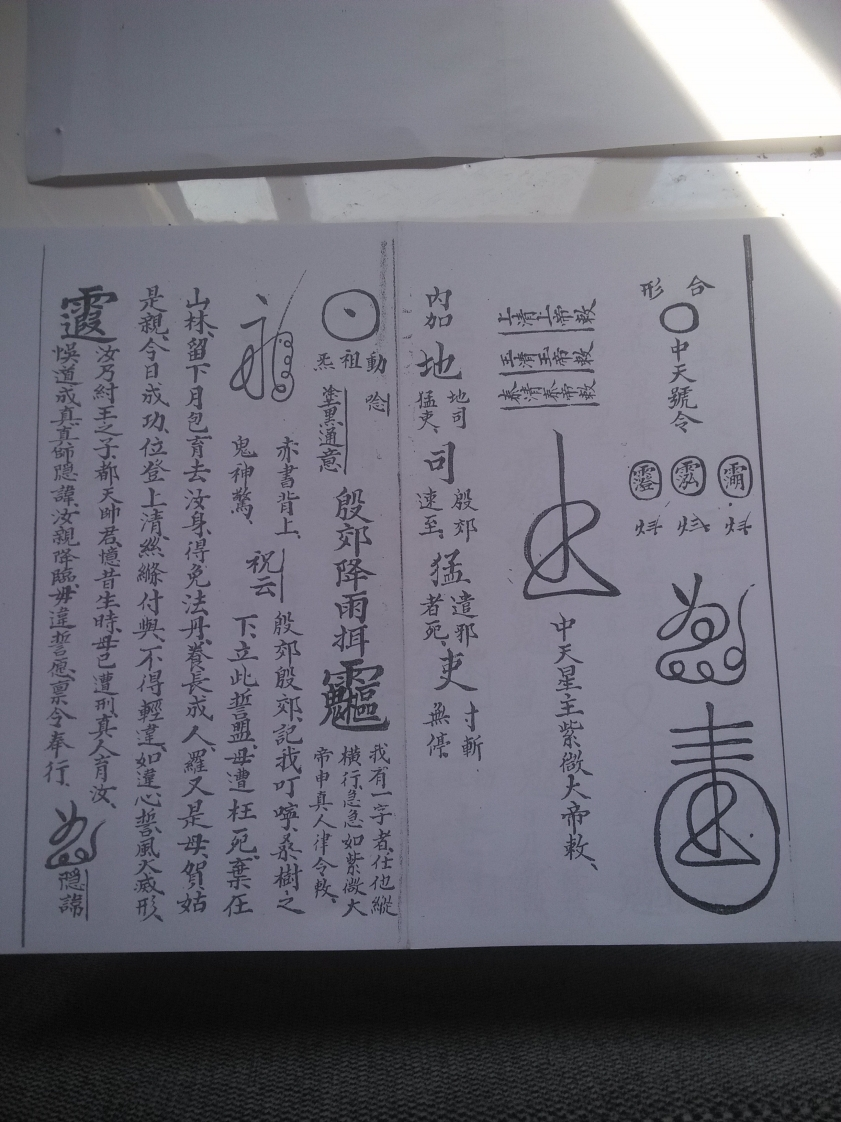 合形
中天號令
上清上帝敕
玉清玉帝敕
泰清泰帝敕
中天星主紫微大帝敕、
內加
地
地司猛吏、
司
殷郊速至、
猛
遣邪者死、
吏
寸斬無停
動祖炁
唸
塗黑通意
殷郊降雨揖
我有一字者、任他縱橫行、急急如紫微大帝申真人律令敕、
赤書背上、鬼神驚、
祝云
殷郊殷郊、記我叮嚀、桑樹之
下、立此誓盟、毋遭枉死、棄在
山林、留下月包、育去汝身、得免法丹、養長成人、羅叉是母、賀姑
是親、今日成功、位登上清、絲縧付與、不得輕違、如違心誓、風火滅形、
霞
汝乃紂王之子、都天帥君、憶昔生時、母已遭刑、真人育汝、
悞道成真、真師隱諱、汝親降臨、毋違誓愿、禀令奉行、
隱諱